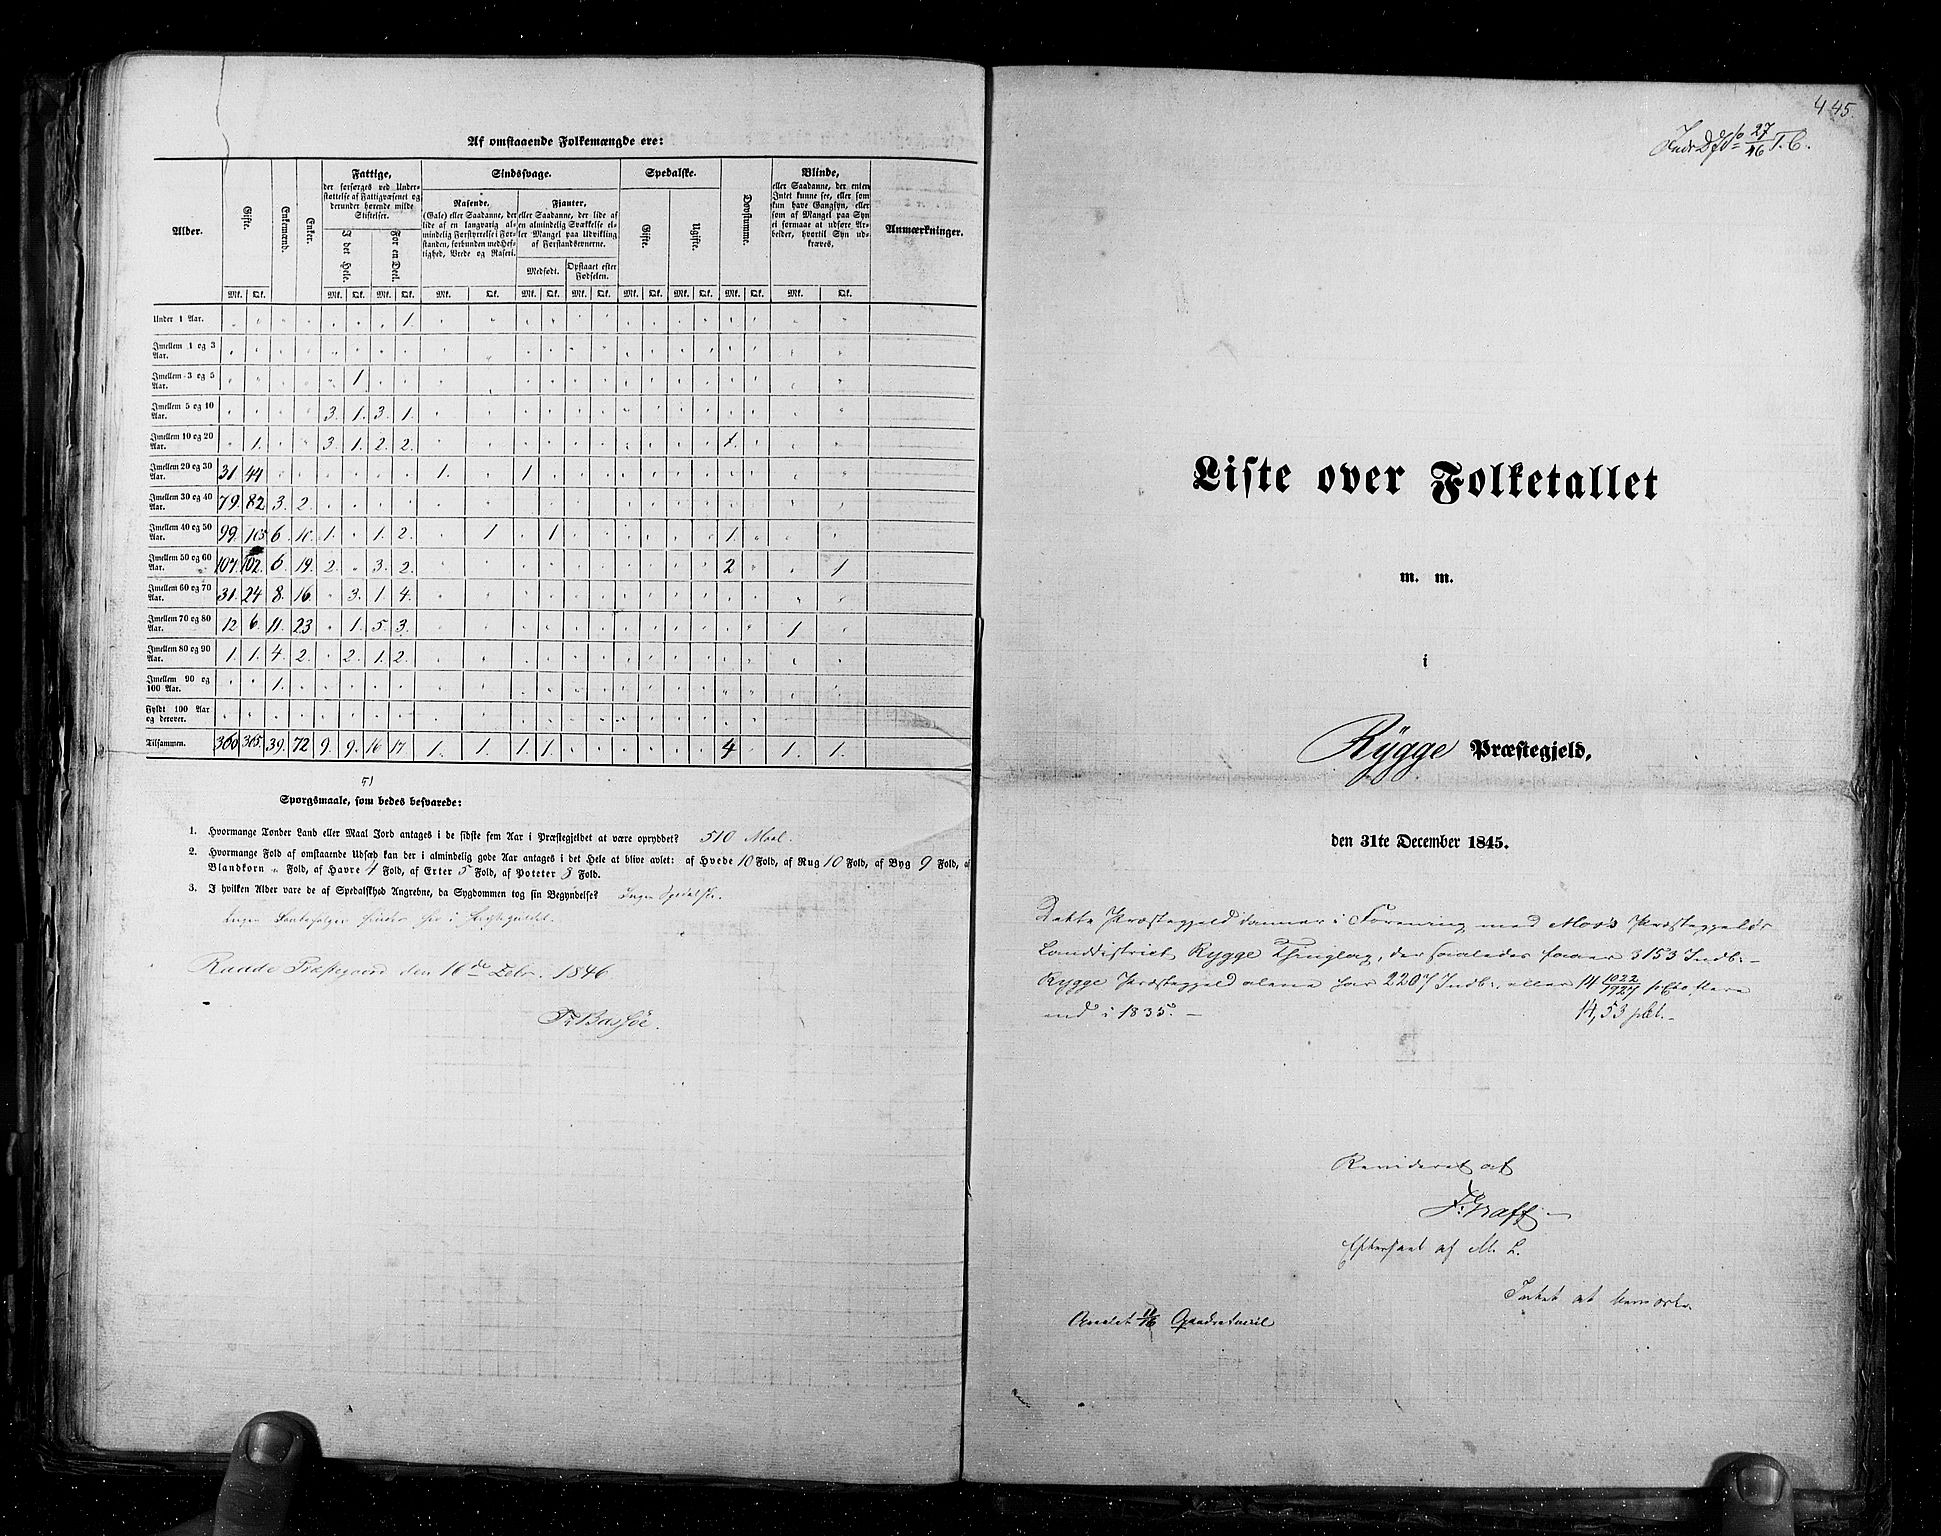 Af omstaaende Folkemængde ere:
Alder. Gifte. Enkemænd. Enker. Fattige, der forsørges ved Understøttelse af Fattigvæsenet og derunder hørende milde Stiftelser. Sindssvage. Spedalske. Døvstumme. Blinde, eller Saadanne, der enten Intet kunne see, eller som kun have Gangsyn, eller som af Mangel paa Syn ei formaae at udføre Arbeider, hvortil Syn udkræves. Anmærkninger.
I det Hele. For en Deel. Rasende. (Gale) eller Saadanne, der lide af en langvarig almindelig Forstyrrelse i Forstanden, forbunden med Heftighed, Vrede og Raseri. Fjanter, eller Saadanne, der lide af en almindelig Svækkelse eller Mangel paa Udvikling af Forstandsevnerne. Gifte. Ugifte.
Medfødt. Opstaaet efter Fødselen.
Mk. Qk. Mk. Qk. Mk. Qk. Mk. Qk. Mk. Qk. Mk. Qk. Mk. Qk. Mk. Qk. Mk. Qk. Mk. Qk.
Under 1 Aar. 1.
Imellem 1 og 3 Aar.
Imellem 3 og 5 Aar. 1
Imellem 5 og 10 Aar. 3. 1. 3. 1.
Imellem 10 og 20 Aar. 1. 3. 1. 2. 2. 1.
Imellem 20 og 30 Aar. 31. 44. 1. 1
Imellem 30 og 40 Aar. 79. 82. 3. 2.
Imellem 40 og 50 Aar. 99. 105 6. 10. 1. 1. 2. 1 1 1.
Imellem 50 og 60 Aar. 107. 102. 6. 19. 2. 3. 2. 2 1
Imellem 60 og 70 Aar. 31. 24 8. 16. 3. 1. 4.
Imellem 70 og 80 Aar. 12 6. 11. 23 1. 5 3. 1
Imellem 80 og 90 Aar. 1. 1. 4. 2. 2. 1. 2.
Imellem 90 og 100 Aar. 1.
Fyldt 100 Aar og derover.
Tilsammen. 360 365. 39. 72 9. 9. 16 17. 1. 1. 1. 1. 4 1. 1.
71
Spørgsmaale, som bedes besvarede:
1. Hvormange Tønder Land eller Maal Jord antages i de sidste fem Aar i Præstegjeldet at være opryddet? 510 Maal.
2. Hvormange Fold af omstaaende Udsæd kan der i almindelig gode Aar antages i det Hele at blive avlet: af Hvede 10 Fold, af Rug 10 Fold, af Byg 9 Fold, af
Blandkorn " Fold, af Havre 4 Fold, af Erter 5 Fold, af Poteter 8 Fold.
3. I hvilken Alder vare de af Spedalskhed Angrebne, da Sygdommen tog sin Begyndelse? Ingen Spedalske.
Ingen i
Raade Præstegaard den 16de Febr. 1846.
Fr. Bassøe.
445.
27/46 T. C.
Liste over Folketallet
m. m.
i
Rygge Præstegjeld,
den 31te December 1845.
Dette Præstegjeld danner i Forening med Moss Præstegjelds
Landdistrict Rygge Thinglag, der saaledes faaer 3153 Indb:
Rygge Præstegjeld alene har 2207 Indb:, eller 14 1022/1927 pCto. flere
end i 1835. —
14,53 pCt. —
Revideret af
F. Graff
Eftersaet af M. L.
Intet at bemærke.
Arealet 11/16 Qvadratmiil